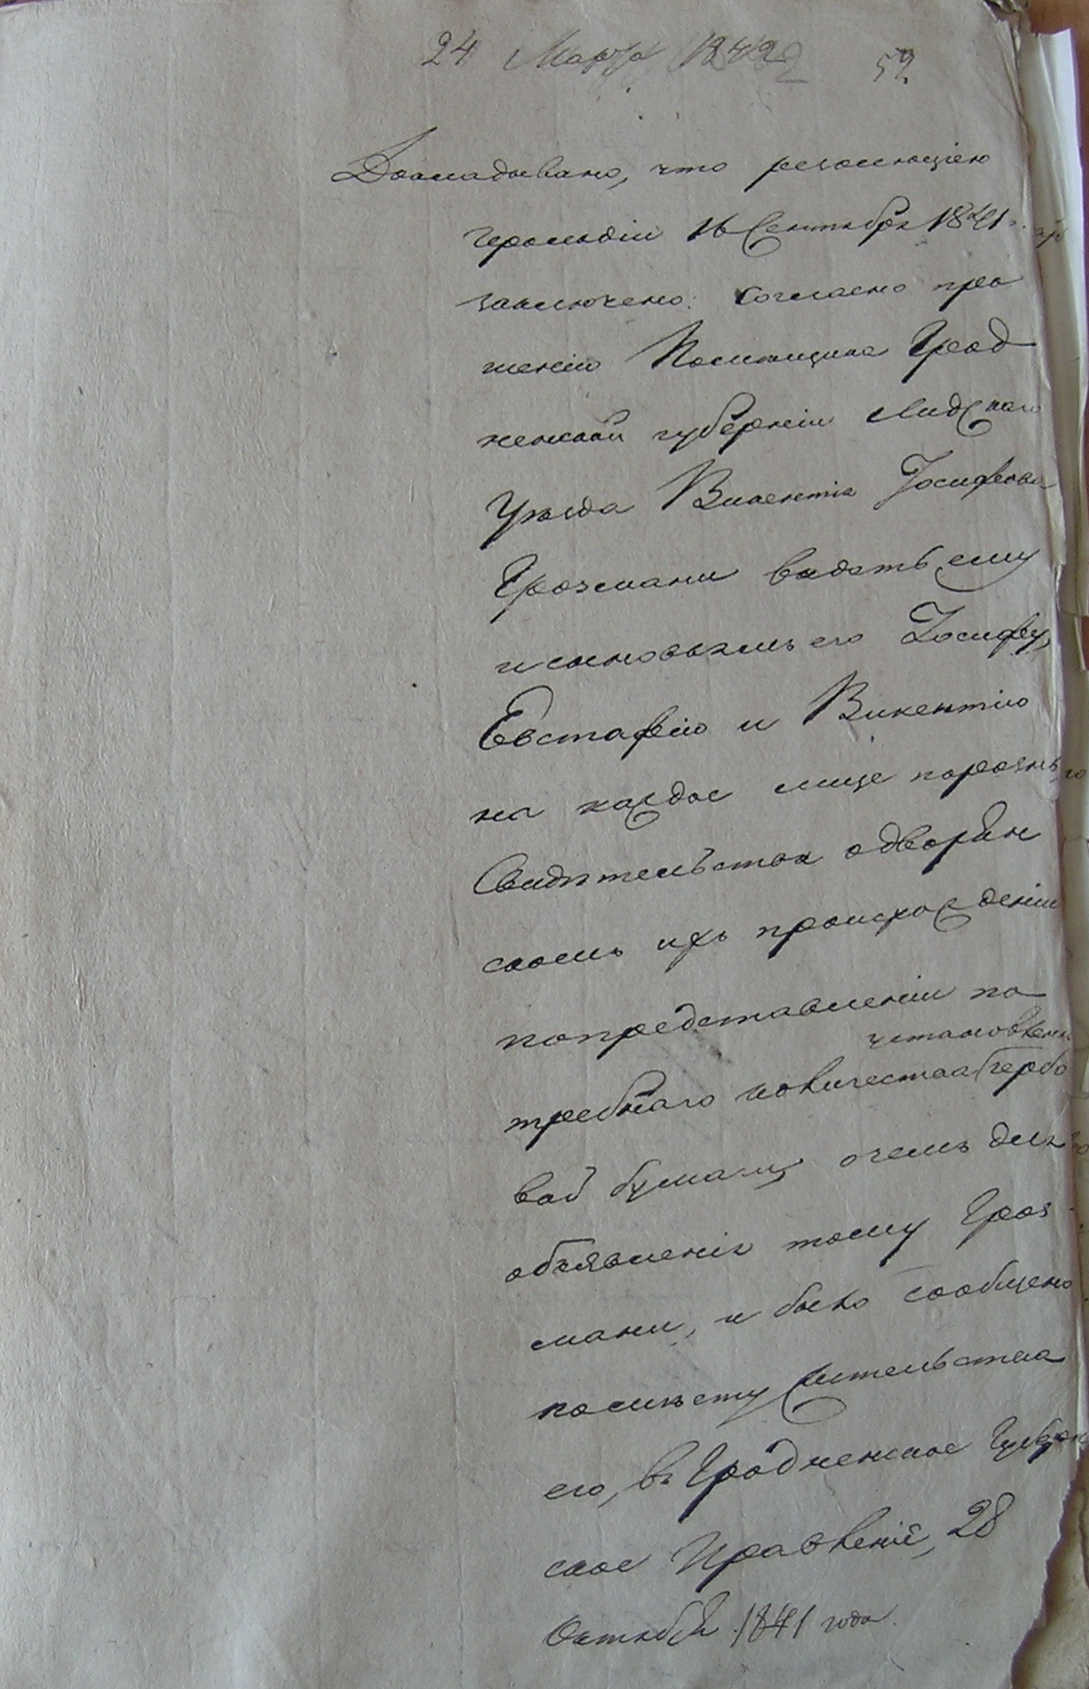 24 Марта 1842
52
Докладывано, что резолюціею
Герольдіи 16 Сентября 1841 г.
заключено: согласно про
шенію Помещика Грод
ненской губерніи Лидскаго
Уезда Викентія Іосифова
Грозмани выдать ему
и сыновьямъ его Іосифу,
Евстафію и Викентію
на каждое лице порознь
Свидѣтельства о дворян
скомъ ихъ происхожденіи
по представленіи по
установлен
требнаго количества гербо
вой бумаги, о чемъ для
объявленія тому Гроз
мани, и было сообщено
по мѣсту жительства
его, въ Гродненское Губерн
ское Правленіе, 28
Октября 1841 года.